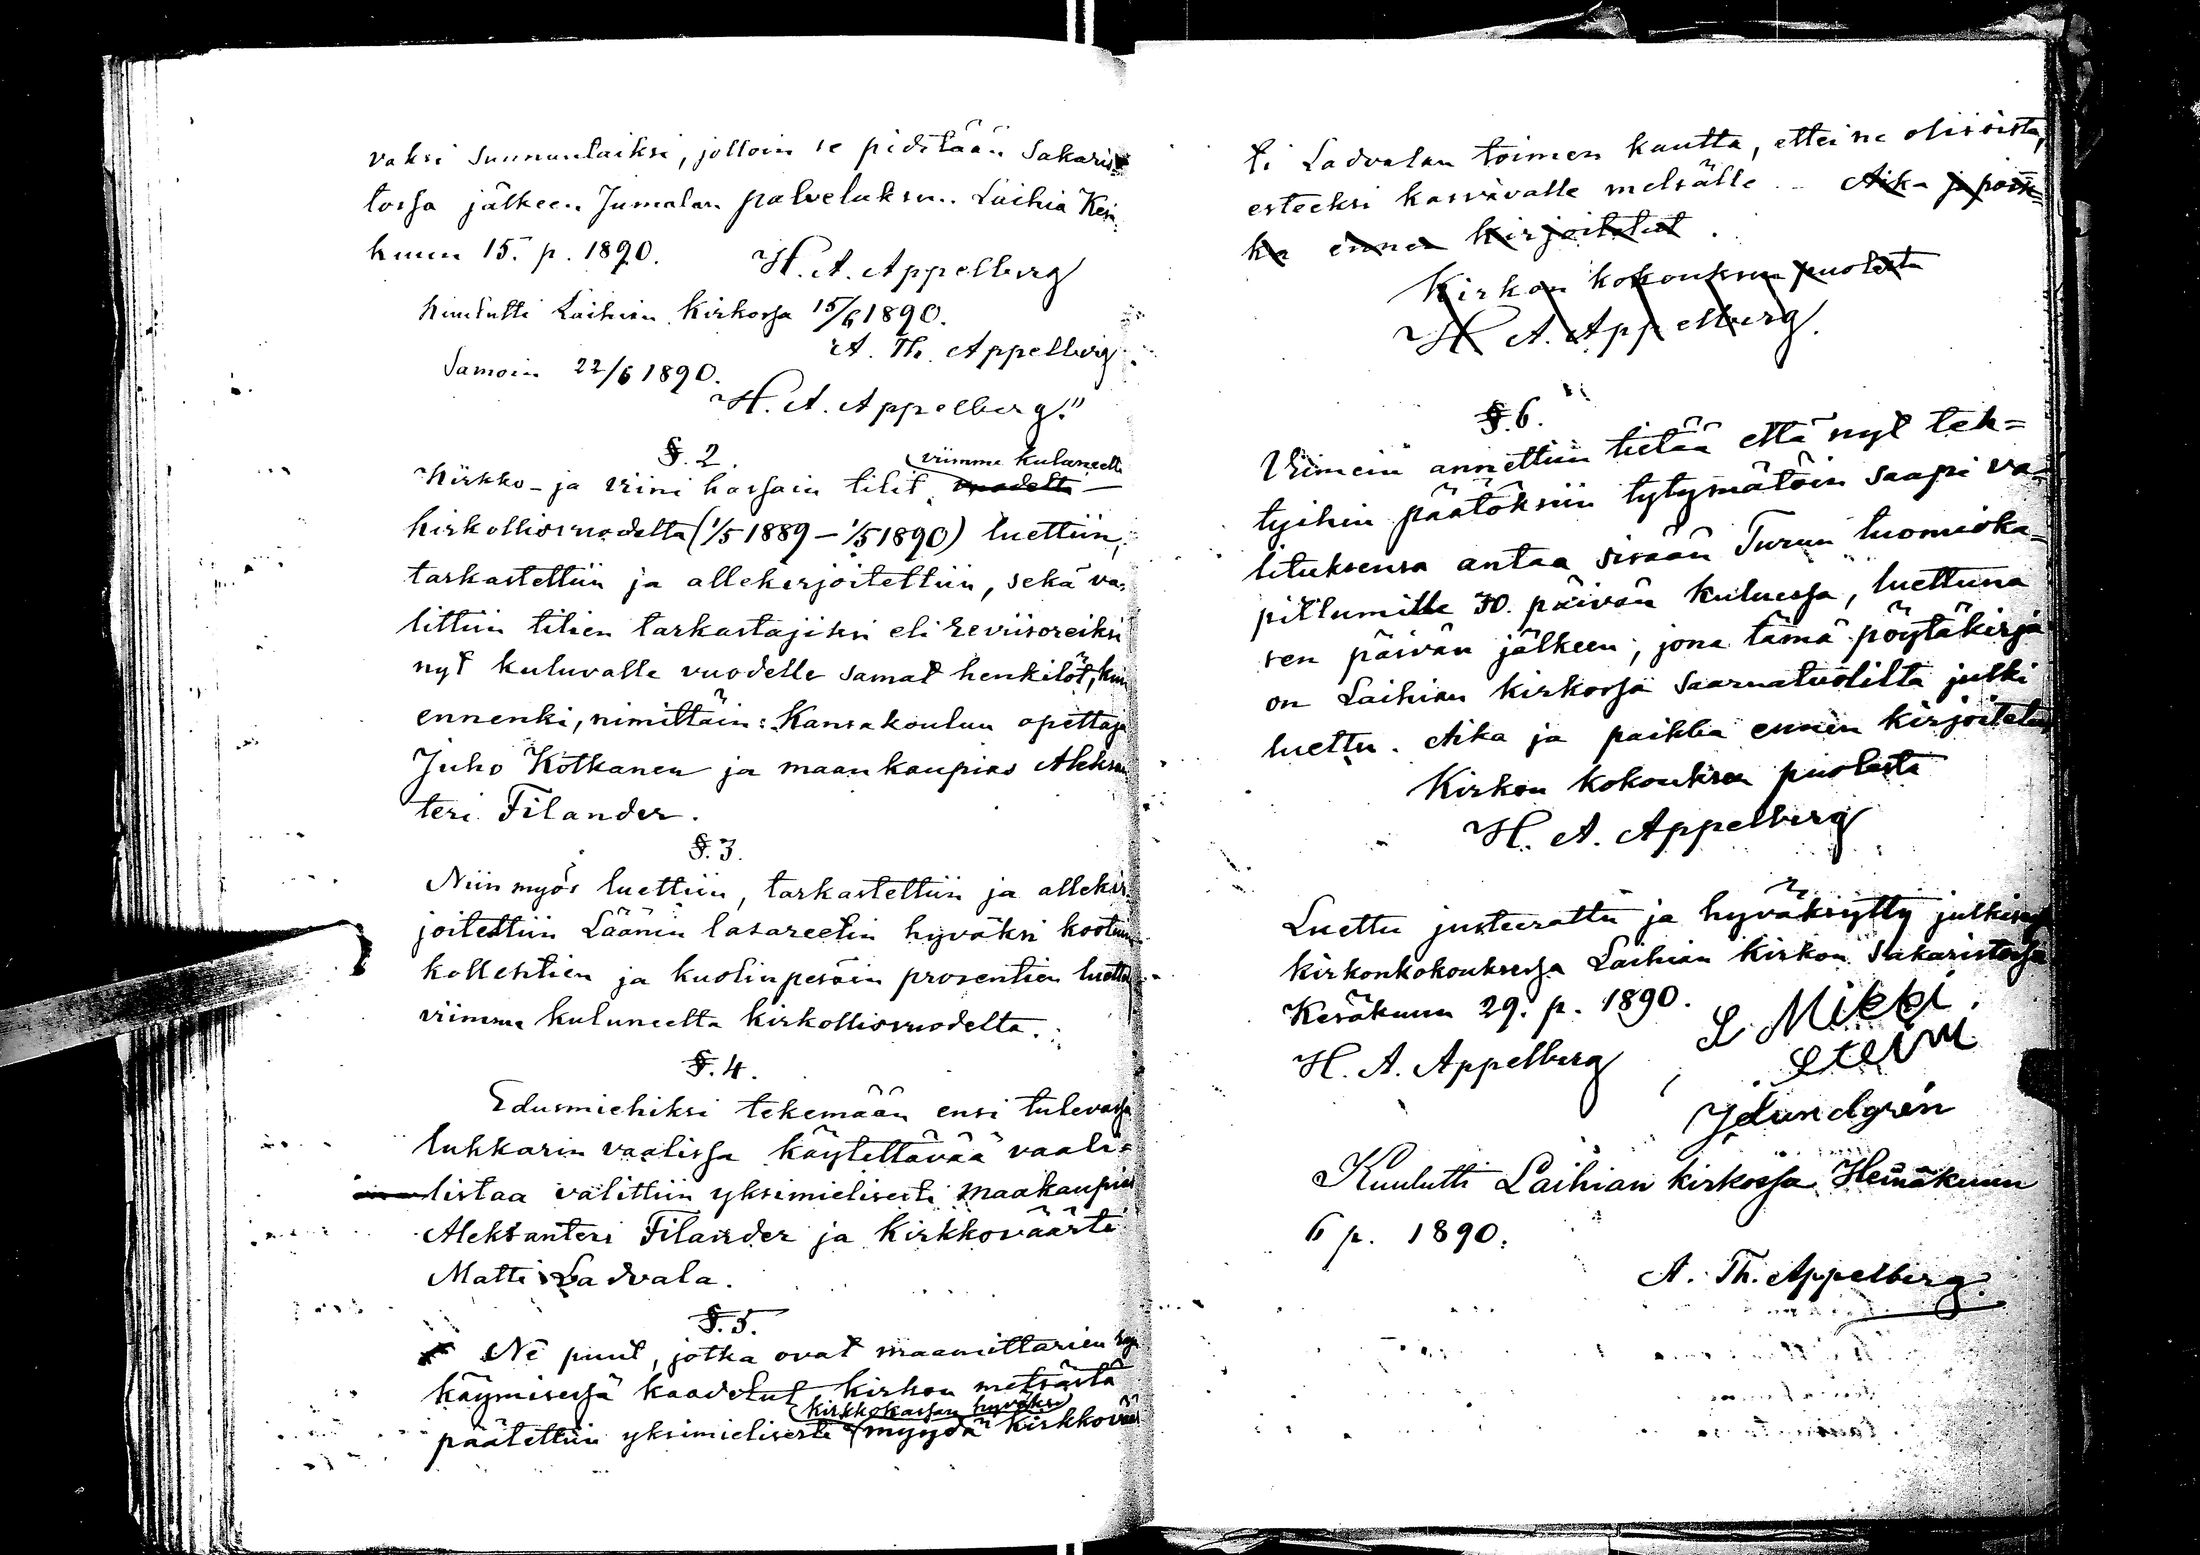 vaksi Sunnuntaiksi, jolloin se pidetään Sakaris
tossa jälkeen Jumalan palveluksen. Laihia Kesä
kuun 15. p. 1890.
H. A. Appelberg
Kuulutti Laihian Kirkossa 15/6 1890.
A. Th. Appelberg
Samoin 22/6 1890.
H. A. Appelberg."
§. 2.
viimme kuluneelta
Kirkko- ja viini kassain tilit vuodelta
kirkollisvuodelta (1/5 1889 – 1/5 1890) luettiin,
tarkastettiin ja allekirjoitettiin, sekä va=
littiin tilien tarkastajiksi eli reviisoreiksi
nyt kuluvalle vuodelle samat henkilöt, kuin
ennenki, nimittäin: Kansakoulun opettaja
Juho Kotkanen ja maankaupias Aleksan
teri Filander.
§. 3.
Niin myös luettiin, tarkastettiin ja allekir
joitettiin Läänin lasareetin hyväksi kootun
kollehtien ja kuolinpesäin prosentien luettelo
viimme kuluneelta kirkollisvuodelta.
§. 4.
Edusmiehiksi tekemään ensi tulevassa
lukkarin vaalissa käytettävää vaali=
listaa valittiin yksimielisesti maakaupias
Aleksanteri Filander ja Kirkkoväärti
Matti Ladvala.
§. 5.
Ne puut, jotka ovat maamittarien
käymisessä kaadetut kirkon metsästä
kirkkokassan hyväksi
päätettiin yksimielisesti myydä Kirkkovää
ti Ladvalan toimen kautta, ettei ne olisi sista,
esteeksi kasvavalle metsälle. Aika ja paik=
ka ennen kirjoitetut.
Kirkon kokouksen puolesta
H. A. Appelberg.
§. 6.
Viimein annettiin tietää että nyt teh=
tyihin päätöksiin tytymätöin saapi va=
lituksensa antaa sisään Turun tuomioka=
pittumille 30. päivän kuluessa, luettuna
sen päivän jälkeen, jona tämä pöytäkirja
on Laihian kirkossa saarnatuolilta julki
luettu. Aika ja paikka ennen kirjoitetut
Kirkon kokouksen puolesta
H. A. Appelberg
Luettu justeerattu ja hyväksytty julkisessa
kirkonkokouksessa Laihian Kirkon Sakaristossa
Kesäkuun 29. p. 1890.
S Mikki
H. A. Appelberg
JLundgrén
Kuulutti Laihian kirkossa Heinäkuun
6 p. 1890.
A. Th. Appelberg.